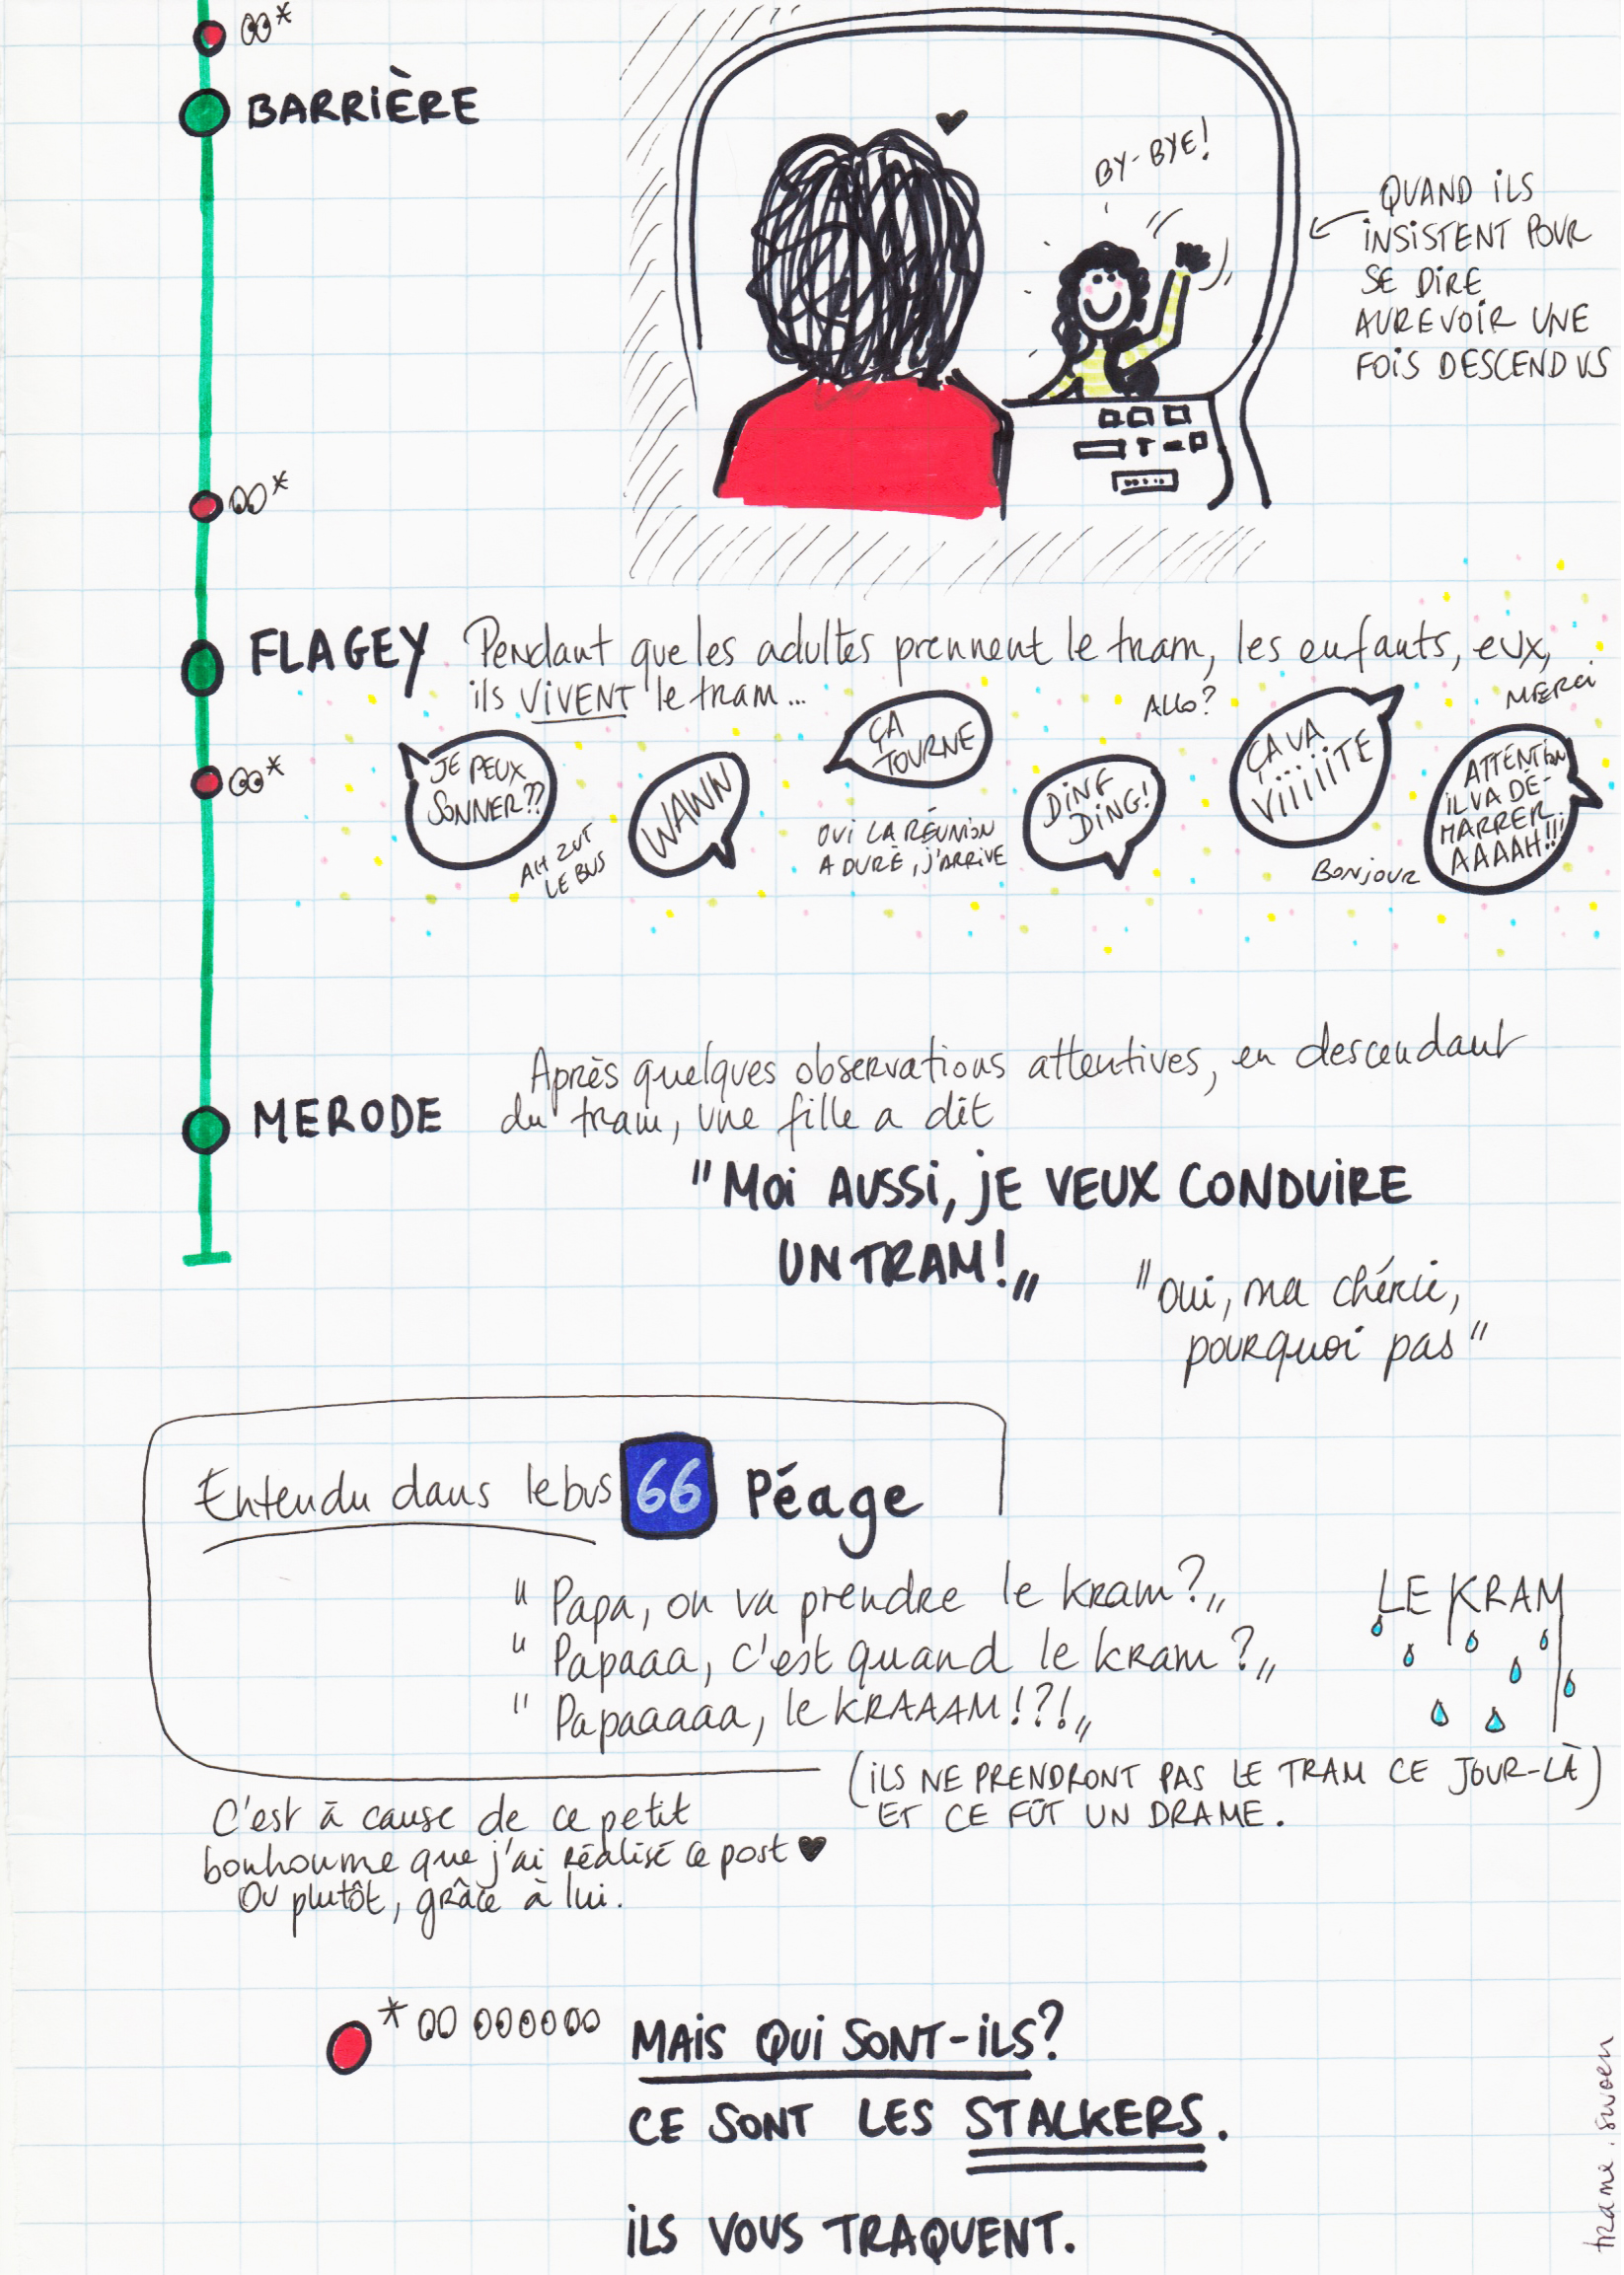 BARRIÈRE
BY-BYE!
QUAND ILS
INSISTENT POUR
SE DIRE
AUREVOIR UNE
FOIS DESCENDUS
FLAGEY
Pendant que les adultes prennent le tram, les enfants, eux,
ils VIVENT le tram...
JE PEUX
SONNER??
AH ZUT
LE BUS
WAWW
ÇA
TOURNE
OUI LA RÉUNION
A DURÉ, J'ARRIVE
ALLO?
DING
DING!
ÇA VA
VIIIIITE
BONJOUR
MERCI
ATTENTION
IL VA DÉ-
MARRER
AAAAH!!!
MERODE
Après quelques observations attentives, en descendant
du tram, une fille a dit
"MOI AUSSI, JE VEUX CONDUIRE
UN TRAM!"
"Oui, ma chérie,
pourquoi pas"
Entendu dans le bus 66 Péage
"Papa, on va prendre le kram?"
"Papaaa, c'est quand le kram?"
"Papaaaaa, le KRAAAM!?!"
LE KRAM
(ILS NE PRENDRONT PAS LE TRAM CE JOUR-LÀ)
ET CE FÛT UN DRAME.
C'est à cause de ce petit
bonhomme que j'ai réalisé ce post ♥
Ou plutôt, grâce à lui.
*
MAIS QUI SONT-ILS?
CE SONT LES STALKERS.
ILS VOUS TRAQUENT.
trame.swoen